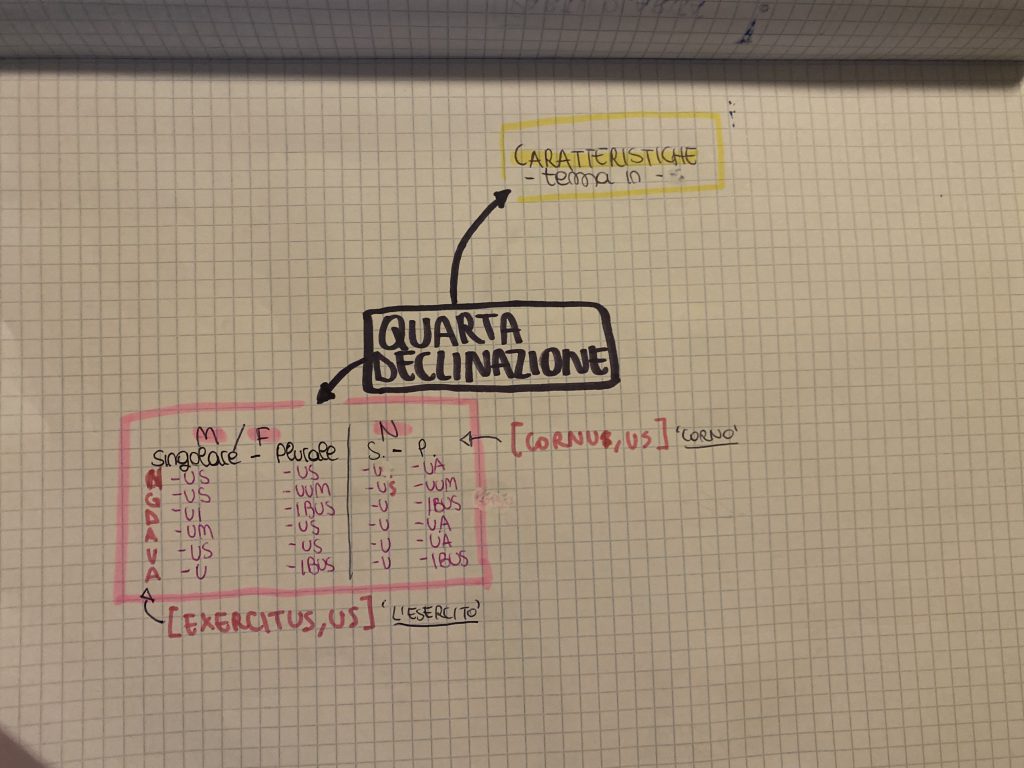 CARATTERISTICHE
- tema in -
QUARTA
DECLINAZIONE
M / F N
Singolare - Plurale S. - P.
N -US -US -U -UA
G -US -UUM -US -UUM
D -UI -IBUS -U -IBUS
A -UM -US -U -UA
V -US -US -U -UA
A -U -IBUS -U -IBUS
[CORNUS, US] 'CORNO'
[EXERCITUS, US] 'L'ESERCITO'